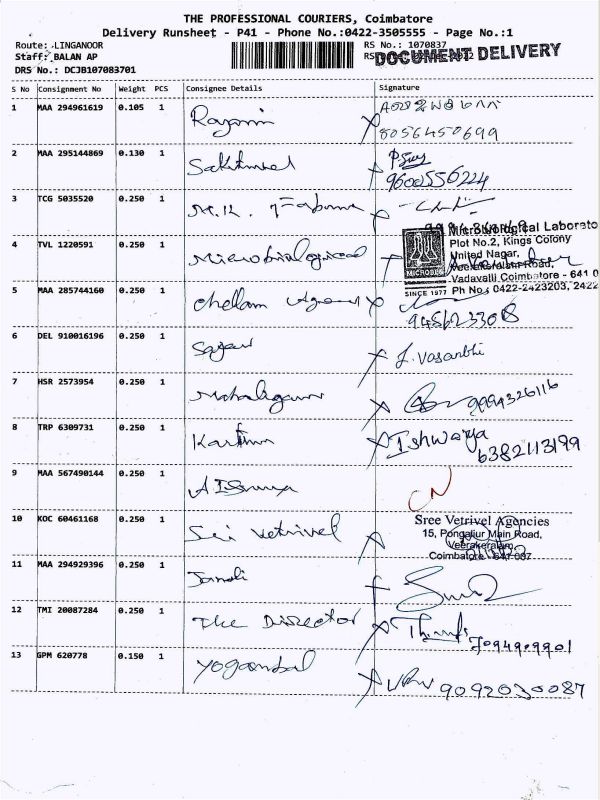 THE PROFESSIONAL COURIERS, Coimbatore
Delivery Runsheet - P41 - Phone No.:0422-3505555 - Page No.:1
Route: LINGANOOR
RS No.: 1070837
Staff: BALAN AP
DOCUMENT DELIVERY
DRS No.: DCJB107083701
S No Consignment No Weight PCS Consignee Details Signature
1 MAA 294961619 0.105 1
8056450699
2 MAA 295144869 0.130 1 Sakthivel
9600556224
3 TCG 5035520 0.250 1 M.K.
4 TVL 1220591 0.250 1 Microbiological
Microbiological Laborato
Plot No.2, Kings Colony
United Nagar,
Veerakeralam Road,
Vadavalli Coimbatore - 641 0
Ph No.: 0422-2423203, 2422
MICROBES
SINCE 1977
5 MAA 285744160 0.250 1 Chellam
9456233018
6 DEL 910016196 0.250 1
J. Vasanthi
7 HSR 2573954 0.250 1
9994326116
8 TRP 6309731 0.250 1
Ishwarya
6382113199
9 MAA 567490144 0.250 1
CN
10 KOC 60461168 0.250 1 Sri Vetrivel
Sree Vetrivel Agencies
15, Pongaliur Main Road,
Veerakeralam,
Coimbatore - 641 007
11 MAA 294929396 0.250 1
12 TMI 20087284 0.250 1 The Director
13 GPM 620778 0.150 1 Yogambal
9092030087